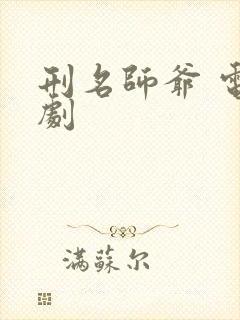 刑名師爺 電
劇
滿蘇尔